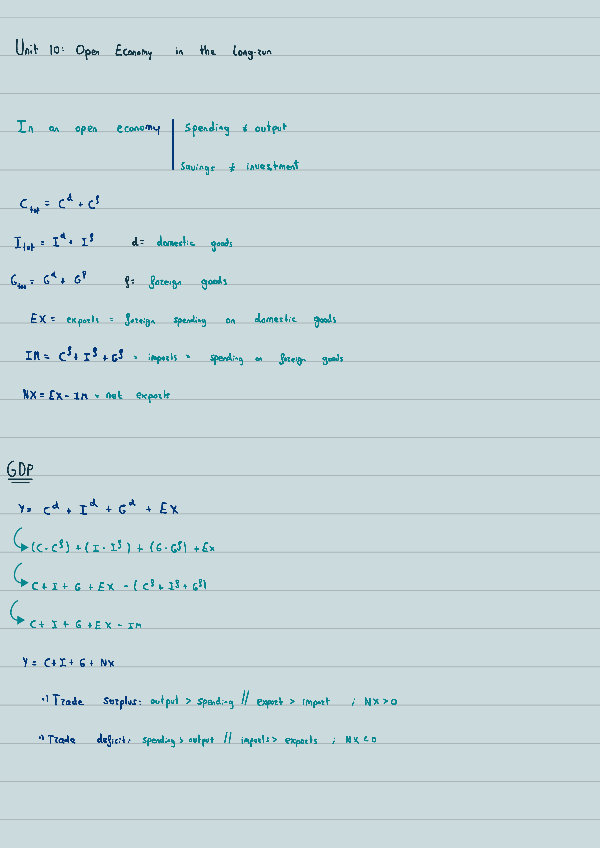 Unit 10: Open Economy in the Long-run
In an open economy | Spending ≠ output
Savings ≠ investment
C_tot = C^d + C^f
I_tot = I^d + I^f   d= domestic goods
G_tot = G^d + G^f   f= foreign goods
EX = exports = foreign spending on domestic goods
IM = C^f + I^f + G^f = imports = spending on foreign goods
NX = EX - IM = net exports
GDP
Y= C^d + I^d + G^d + EX
(C - C^f) + (I - I^f) + (G - G^f) + EX
C + I + G + EX - (C^f + I^f + G^f)
C + I + G + EX - IM
Y = C + I + G + NX
*) Trade surplus: output > spending // export > import ; NX > 0
*) Trade deficit: spending > output // imports > exports ; NX < 0